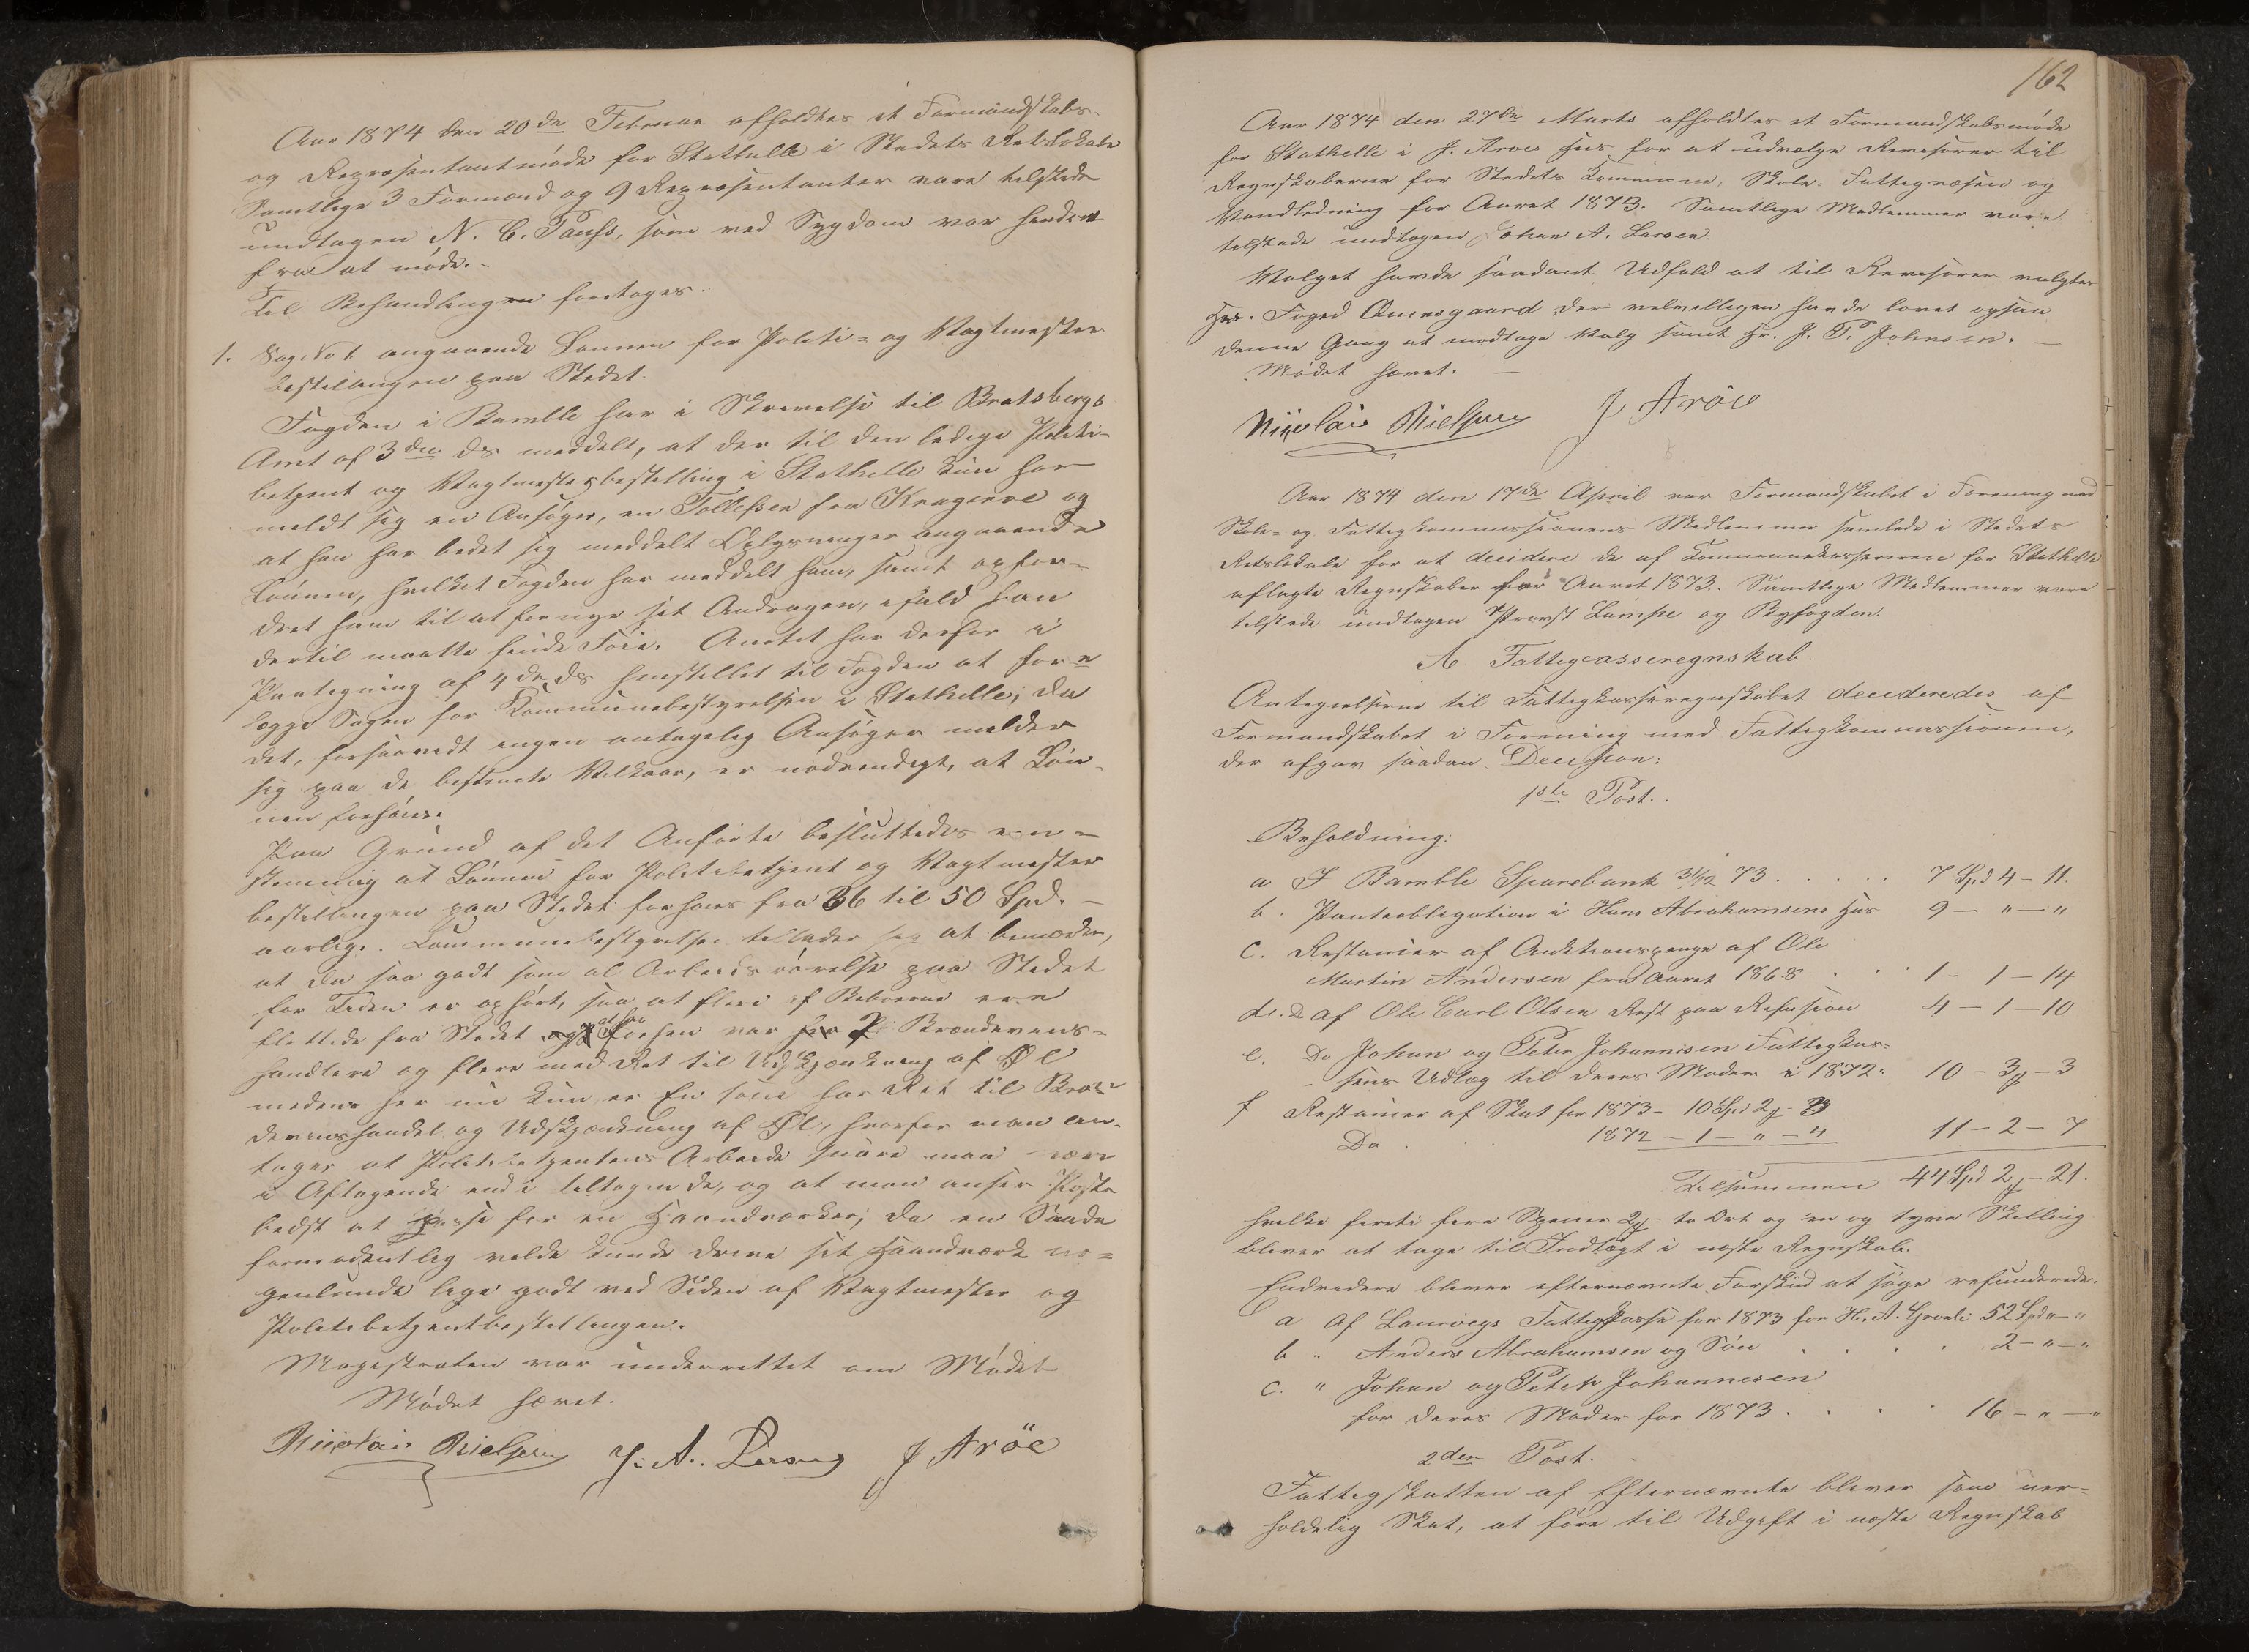 Aar 1874 den 20de Februar afholdtes et Formandskabs-
og Repræsentantmøde for Stathelle i Stedets Retslokale
Samtlige 3 Formænd og 9 Repræsentanter vare tilstede
undtagen N. C. Paus, som ved Sygdom var hindret
fra at møde.-
Til Behandlingen foretoges:
1. Sag No 1. angaaende Lønnen for Politi- og Vagtmester
bestillingen paa Stedet.
Fogden i Bamble har i Skrivelse til Bratsbergs
Amt af 3die ds meddelt, at der til den ledige Politi-
betjent og Vagtmesterbestilling i Stathelle kun har
meldt sig en Ansøger, en Tollefsen fra Kragerøe og
at han har bedet sig meddelt Oplysninger angaaende
Lønnen, hvilket Fogden har meddelt ham, samt opfor-
dret ham til at fornye sit Andragen, ifald han
dertil maatte finde Føie. Amtet har derfor i
Paategning af 4de ds henstillet til Fogden at fore-
lægge Sagen for Kommunebestyrelsen i Stathelle; da
det, forsaavidt ingen antagelig Ansøger melder
sig paa de bestemte Vilkaar, er nødvendigt, at Løn-
nen forhøies.
Paa Grund af det Anførte besluttedes een-
stemmig at Lønnen for Politibetjent og Vagtmester
bestillingen paa Stedet forhøies fra 36 til 50 Spd. -
aarlig. Kommunebestyrelsen tillader sig at bemærke,
at da saa godt som al Arbeidsrørelse paa Stedet
for Tiden er ophørt, saa at flere af Beboerne ere
flyttede fra Stedet og at her forhen var 2 Brændevins-
handlere og flere med Ret til Udskjænkning af Øl
medens her nu kun er En som har Ret til Bræn-
devinshandel og Udskjænkning af Øl, hvorfor man an-
tager at Politibetjentens Arbeide snare maa være
i Aftagende end i tiltagende, og at man anser Posten
bedst at passe for en Haandværker; da en Saadan
formodentlig vilde kunde drive sit Haandværk no-
genlunde lige godt ved Siden af Vagtmester og
Politibetjentbestillingen.
Magistraten var underrettet om Mødet
Mødet hævet.
Nicolai Nielsen J. A. Larsen J Arøe
162
Aar 1874 den 27de Marts afholdtes et Formandskabsmøde
for Stathelle i J. Arøes Hus for at udvælge Revisorer til
Regnskaberne for Stedets Kommune, Skole, Fattigvæsen og
Vandledning for Aaret 1873. Samtlige Medlemmer vare
tilstede undtagen Johan A. Larsen.
Valget havde saadant Udfald at til Revisorer valgtes
Hr. Foged Qvinsgaard der velvilligen havde lovet ogsaa
denne Gang at modtage Valg samt Hr. J. P. Johnsen. -
Mødet hævet. -
Nicolai Nielsen J Arøe
Aar 1874 den 17de April var Formandskabet i Forening med
Skole- og Fattigkommissionens Medlemmer samlede i Stedets
Retslokale for at decidere de af Kommunekassereren for Stathelle
aflagte Regnskaber for Aaret 1873. Samtlige Medlemmer vare
tilstede undtagen Provst Lampe og Byfogden.
A Fattigcasseregnskab.
Antegnelserne til Fattigkasseregnskabet decideredes af
Formandskabet i Forening med Fattigkommissionen,
der afgav saadan Decision:
1ste Post.
Beholdning:
a I Bamble Sparebank 31/12 73 . . . . . 7 Spd 4 - 11.
b. Panteobligation i Hans Abrahamsens Hus 9 - " - "
c. Restancer af Auktionspenge af Ole
Martin Andersen fra Aaret 1868 . . . 1 - 1 - 14
d. Do af Ole Carl Olsen Rest paa Refusion 4 - 1 - 10
e. Do Johan og Peter Johannisen Fattigkas-
sens Udlæg til deres Moder i 1872. 10 - 3 - 3
f Restancer af Skat for 1873 - 10 Spd 2 - 3
Do . . 1872 - 1 - " - 4 11 - 2 - 7
Tilsammen 44 Spd 2 - 21.
hvilke firti fire Spcier 2 - to Ort og een og tyve Skilling
bliver at tage til Indtægt i næste Regnskab.
Endvidere bliver efternævnte Forskud at søge refunderede.
a Af Laurvigs Fattigkasse for 1873 for H. A. Groli 52 Spd " - "
b " Anders Abrahamsen og Søn . . . . 2 - " - "
c. " Johan og Peter Johannesen
for deres Moder for 1873 . . . . 16 - " - "
2den Post.
Fattigskatten af Efternævnte bliver som uer-
holdelig Skat, at føre til Udgift i næste Regnskab